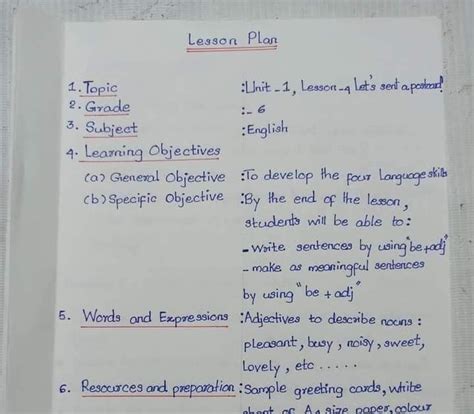 Lesson Plan
1. Topic :Unit -1, Lesson -4 Let's sent a postcard!
2. Grade :- 6
3. Subject :English
4. Learning Objectives
(a) General Objective :To develop the four Language skills
(b) Specific Objective :By the end of the lesson,
students will be able to:
- Write sentences by using "be + adj"
- make as meaningful sentences
by using "be + adj"
5. Words and Expressions :Adjectives to describe nouns :
pleasant, busy, noisy, sweet,
Lovely, etc .....
6. Resources and preparation :Sample greeting cards, white
sheet of A4 size paper, colour